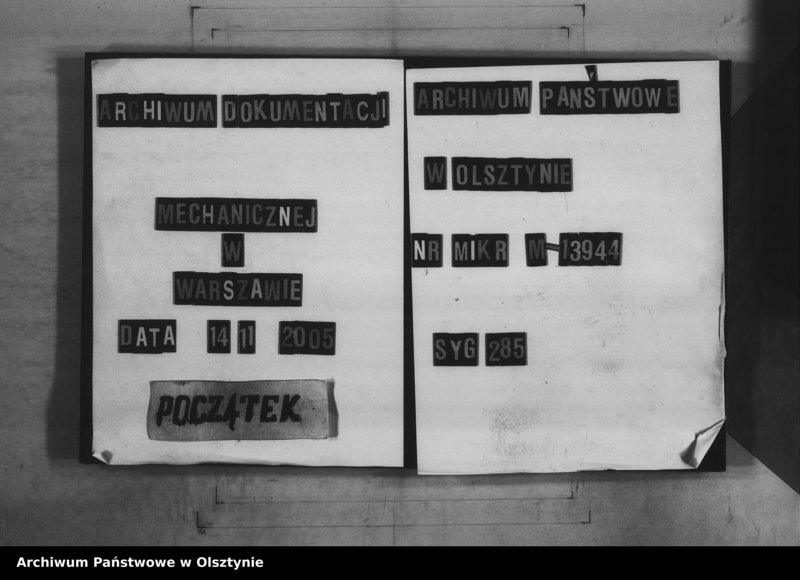 ARCHIWUM DOKUMENTACJI
MECHANICZNEJ
W
WARSZAWIE
DATA 14 11 2005
POCZĄTEK
ARCHIWUM PAŃSTWOWE
W OLSZTYNIE
NR MIKR M-13944
SYG 285
Archiwum Państwowe w Olsztynie